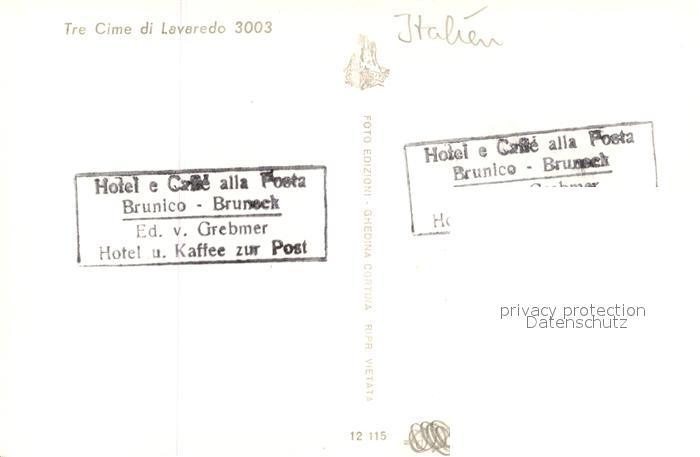 Tre Cime di Lavaredo 3003
Italien
Hotel e Caffé alla Posta
Brunico - Bruneck
Ed. v. Grebmer
Hotel u. Kaffee zur Post
FOTO EDIZIONI - GHEDINA CORTINA - RIPR. VIETATA
12 115
Hotel e Caffé alla Posta
Brunico - Bruneck
Grebmer
Ho
privacy protection
Datenschutz